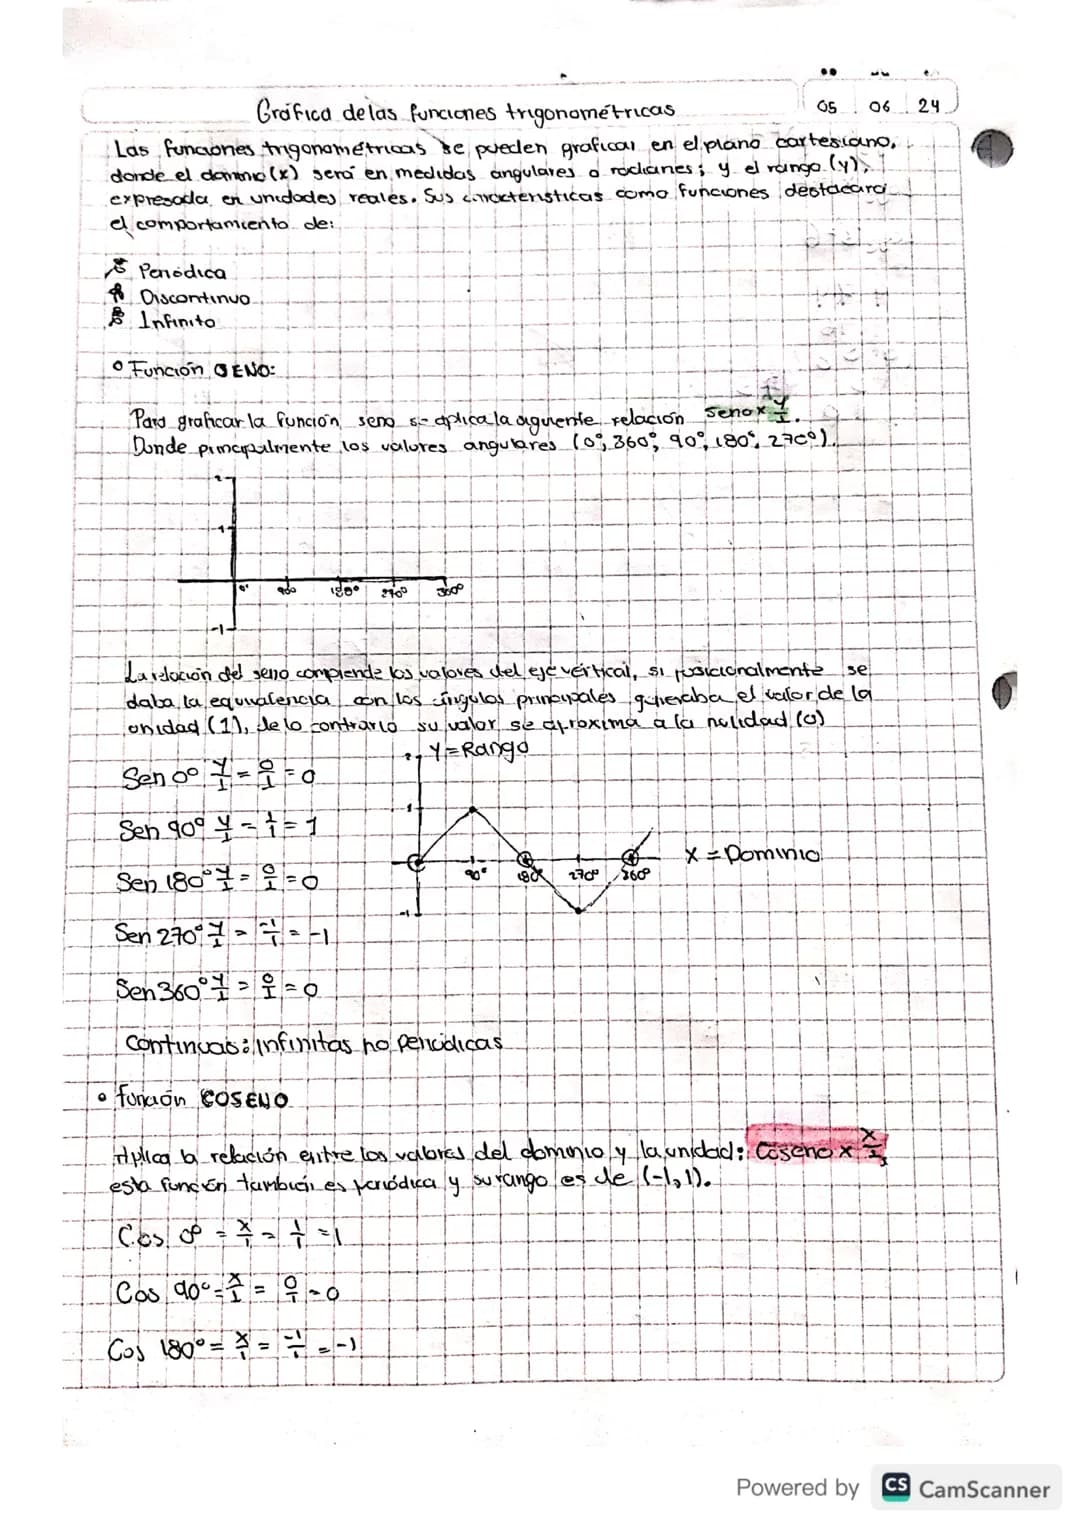 05 06 24
Gráfica de las funciones trigonométricas
Las funciones trigonométricas se pueden graficar en el plano cartesiano,
donde el dominio (x) será en medidas angulares o radianes; y el rango (y),
expresada en unidades reales. Sus características como funciones destacara
el comportamiento de:
Periódica
Discontinuo
Infinito
° Función SENO:
Para graficar la función seno se aplica la siguiente relación Seno x y/1.
Donde principalmente los valores angulares (0°, 360°, 90°, 180°, 270°).
2
1
0° 90° 180° 270° 360°
-1
La relación del seno comprende los valores del eje vértical, si posicionalmente se
daba la equivalencia con los ángulos principales generaba el valor de la
unidad (1), de lo contrario su valor se aproxima a la nulidad (0)
2 Y=Rango
Sen 0° y/1 = 0/1 = 0
1
Sen 90° y/1 = 1/1 = 1
X = Dominio
90° 180° 270° 360°
Sen 180° y/1 = 0/1 = 0
-1
Sen 270° y/1 = -1/1 = -1
Sen 360° y/1 = 0/1 = 0
Continuas: Infinitas no periódicas
• función COSENO
Aplica la relación entre los valores del dominio y la unidad: Coseno x x/1,
esta función también es periódica y su rango es de (-1,1).
Cos 0° = x/1 = 1/1 = 1
Cos 90° = x/1 = 0/1 = 0
Cos 180° = x/1 = -1/1 = -1
Powered by CS CamScanner